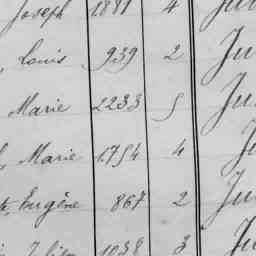 Joseph 1881 4 Ju
, Louis 939 2 Ju
Marie 2233 5 Ju
Marie 1754 4 Ju
Eugène 867 2 Ju
1038 3 Ju